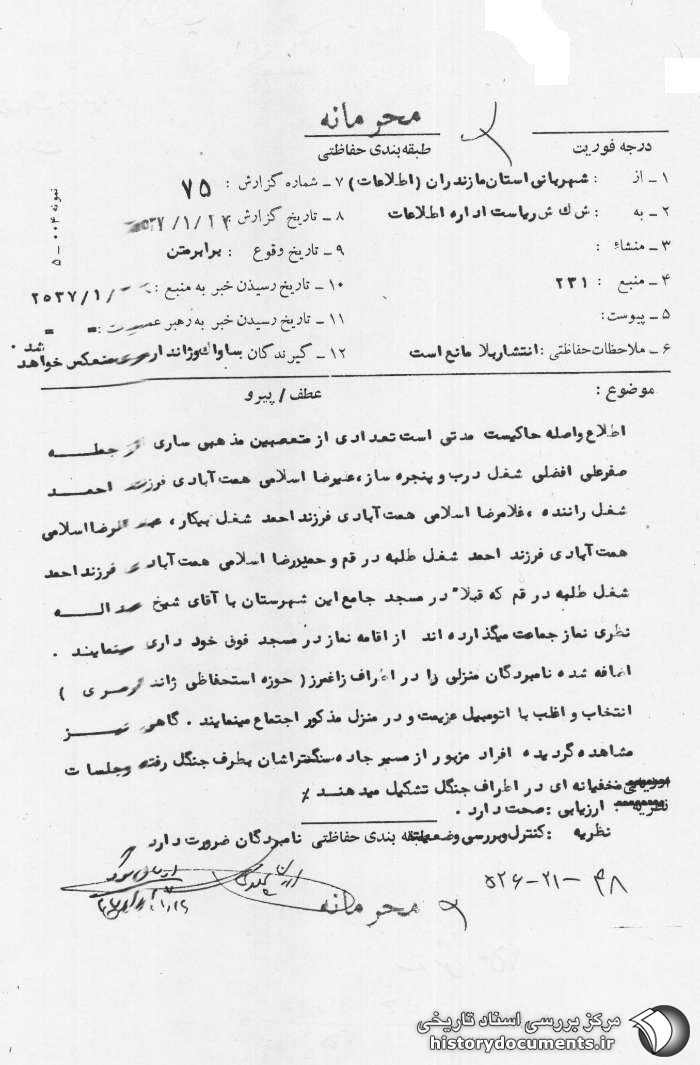 محرمانه
درجه فوریت
طبقه‌بندی حفاظتی
۱ـ از : شهربانی استان مازندران (اطلاعات)
۷ـ شماره گزارش : ۷۵
۲ـ به : ش ك ش ریاست اداره اطلاعات
۸ـ تاریخ گزارش ۲۵۳۷/۱/۲۴
۳ـ منشاء :
۹ـ تاریخ وقوع : برابرمتن
۴ـ منبع : ۲۳۱
۱۰ـ تاریخ رسیدن خبر به منبع : ۲۵۳۷/۱/
۵ـ پیوست:
۱۱ـ تاریخ رسیدن خبر به رهبر عملیات : = =
۶ـ ملاحظات حفاظتی : انتشاربلا مانع است
۱۲ـ گیرندگان ساواك وژاندارمری منعکس خواهد شد .
نمونه ۰۰۴ ـ ۵
موضوع :
عطف / پیرو
اطلاع واصله حاکیست مدتی است تعدادی از متعصبین مذهبی ساری از جمله
صفرعلی افضلی شغل درب و پنجره ساز ، علیرضا اسلامی همت آبادی فرزند احمد
شغل راننده ، غلامرضا اسلامی همت آبادی فرزند احمد شغل بیکار ، اسلامی
همت آبادی فرزند احمد شغل طلبه در قم و حمیدرضا اسلامی همت آبادی فرزند احمد
شغل طلبه در قم که قبلا" در مسجد جامع این شهرستان با آقای شیخ عبداله
نظری نماز جماعت میگذارده اند از اقامه نماز در مسجد فوق خود داری مینمایند .
اضافه شده نامبردگان منزلی را در اطراف زاغمرز ( حوزه استحفاظی ژاندارمری )
انتخاب و اغلب با اتومبیل عزیمت و در منزل مذکور اجتماع مینمایند . گاهی نیز
مشاهده گردیده افراد مزبور از مسیر جاده سنگتراشان بطرف جنگل رفته وجلسات
مخفیانه ای در اطراف جنگل تشکیل میدهند ٪
ارزیابی : صحت دارد .
نظریه : کنترل وبررسی وضعیت نامبردگان ضرورت دارد
طبقه بندی حفاظتی
۵۲۶-۲۱-۴۸
محرمانه
مرکز بررسی اسناد تاریخی
historydocuments.ir